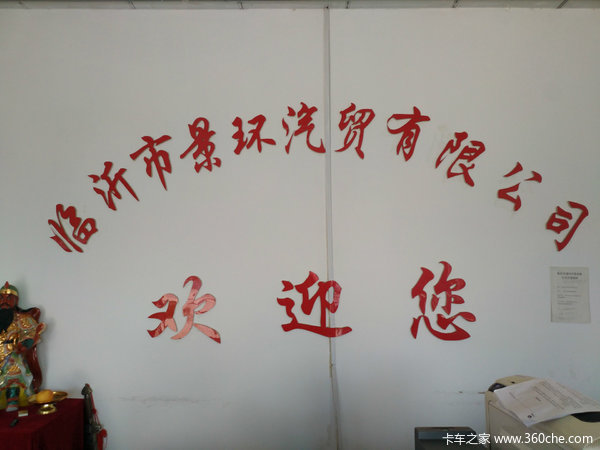 临沂市景环汽贸有限公司
欢迎您
卡车之家 www.360che.com